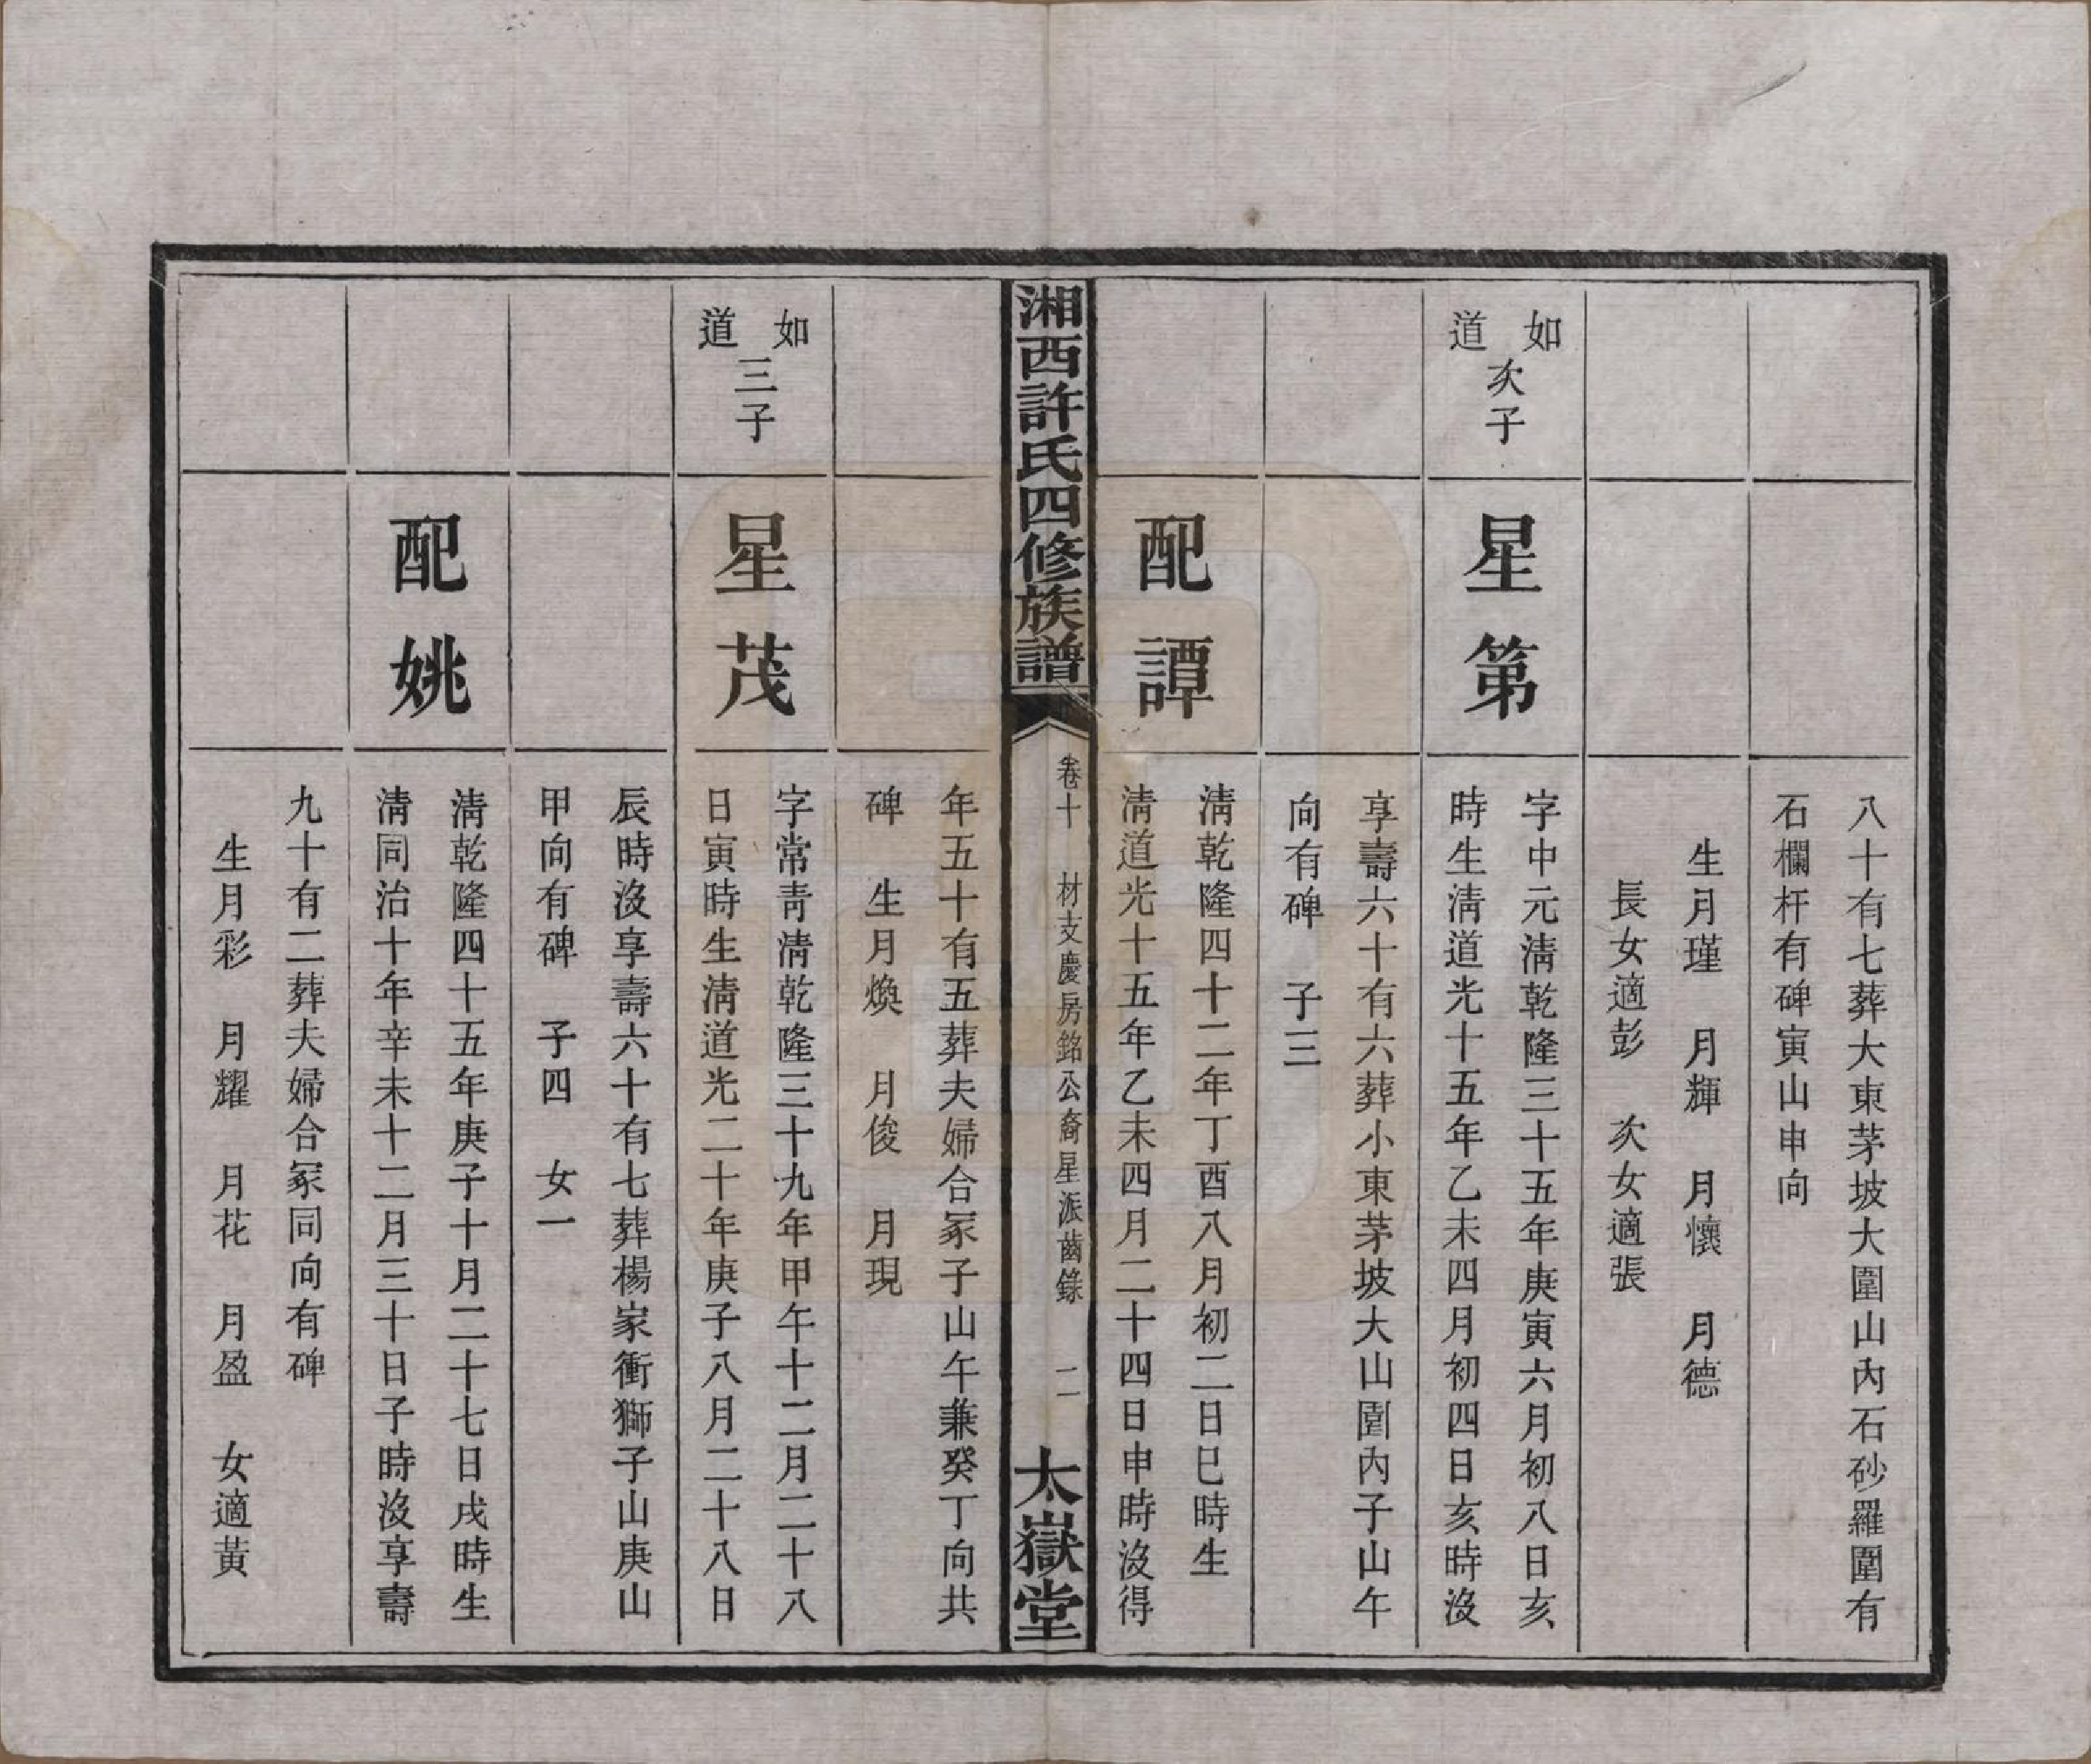 八十有七葬大東茅坡大圍山內石砂羅圍有
石欄杆有碑寅山申向
生月瑾　月輝　月懷　月德
長女適彭　次女適張
如道次子
星第
字中元淸乾隆三十五年庚寅六月初八日亥
時生淸道光十五年乙未四月初四日亥時沒
享壽六十有六葬小東茅坡大山圍內子山午
向有碑　子三
配譚
淸乾隆四十二年丁酉八月初二日巳時生
淸道光十五年乙未四月二十四日申時沒得
湘西許氏四修族譜
卷十　材支慶房銘公裔星派齒錄
二一
太嶽堂
年五十有五葬夫婦合冢子山午兼癸丁向共
碑　生月煥　月俊　月現
如道三子
星茂
字常靑淸乾隆三十九年甲午十二月二十八
日寅時生淸道光二十年庚子八月二十八日
辰時沒享壽六十有七葬楊家衝獅子山庚山
甲向有碑　子四　女一
配姚
淸乾隆四十五年庚子十月二十七日戌時生
淸同治十年辛未十二月三十日子時沒享壽
九十有二葬夫婦合冢同向有碑
生月彩　月耀　月花　月盈　女適黃